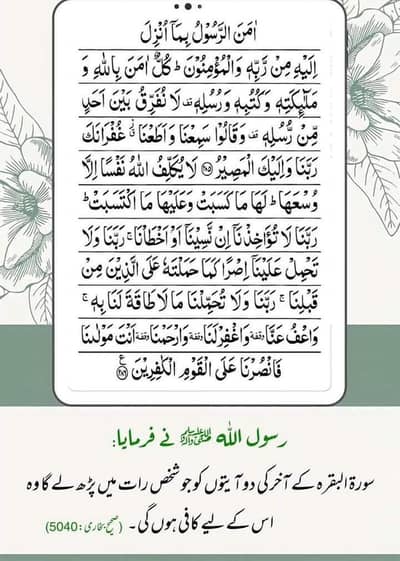 اٰمَنَ الرَّسُوْلُ بِمَاۤ اُنْزِلَ
اِلَیْهِ مِنْ رَّبِّهٖ وَ الْمُؤْمِنُوْنَؕ كُلٌّ اٰمَنَ بِاللّٰهِ وَ
مَلٰٓىِٕكَتِهٖ وَ كُتُبِهٖ وَ رُسُلِهٖ۫ لَا نُفَرِّقُ بَیْنَ اَحَدٍ
مِّنْ رُّسُلِهٖ۫ وَ قَالُوْا سَمِعْنَا وَ اَطَعْنَا ٘ۗ غُفْرَانَكَ
رَبَّنَا وَ اِلَیْكَ الْمَصِیْرُ ۝۲۸۵ لَا یُكَلِّفُ اللّٰهُ نَفْسًا اِلَّا
وُسْعَهَاؕ لَهَا مَا كَسَبَتْ وَ عَلَیْهَا مَا اكْتَسَبَتْؕ
رَبَّنَا لَا تُؤَاخِذْنَاۤ اِنْ نَّسِیْنَاۤ اَوْ اَخْطَاْنَاۚ رَبَّنَا وَ لَا
تَحْمِلْ عَلَیْنَاۤ اِصْرًا كَمَا حَمَلْتَهٗ عَلَى الَّذِیْنَ مِنْ
قَبْلِنَاۚ رَبَّنَا وَ لَا تُحَمِّلْنَا مَا لَا طَاقَةَ لَنَا بِهٖۚ
وَ اعْفُ عَنَّاٙ وقفة وَ اغْفِرْ لَنَاٙ وقفة وَ ارْحَمْنَاٙ وقفة اَنْتَ مَوْلٰىنَا
فَانْصُرْنَا عَلَى الْقَوْمِ الْكٰفِرِیْنَ ۝۲۸۶ ع
رسول اللہ ﷺ نے فرمایا:
سورۃ البقرہ کے آخر کی دو آیتوں کو جو شخص رات میں پڑھ لے گا وہ
اس کے لیے کافی ہوں گی۔ (صحیح بخاری: 5040)